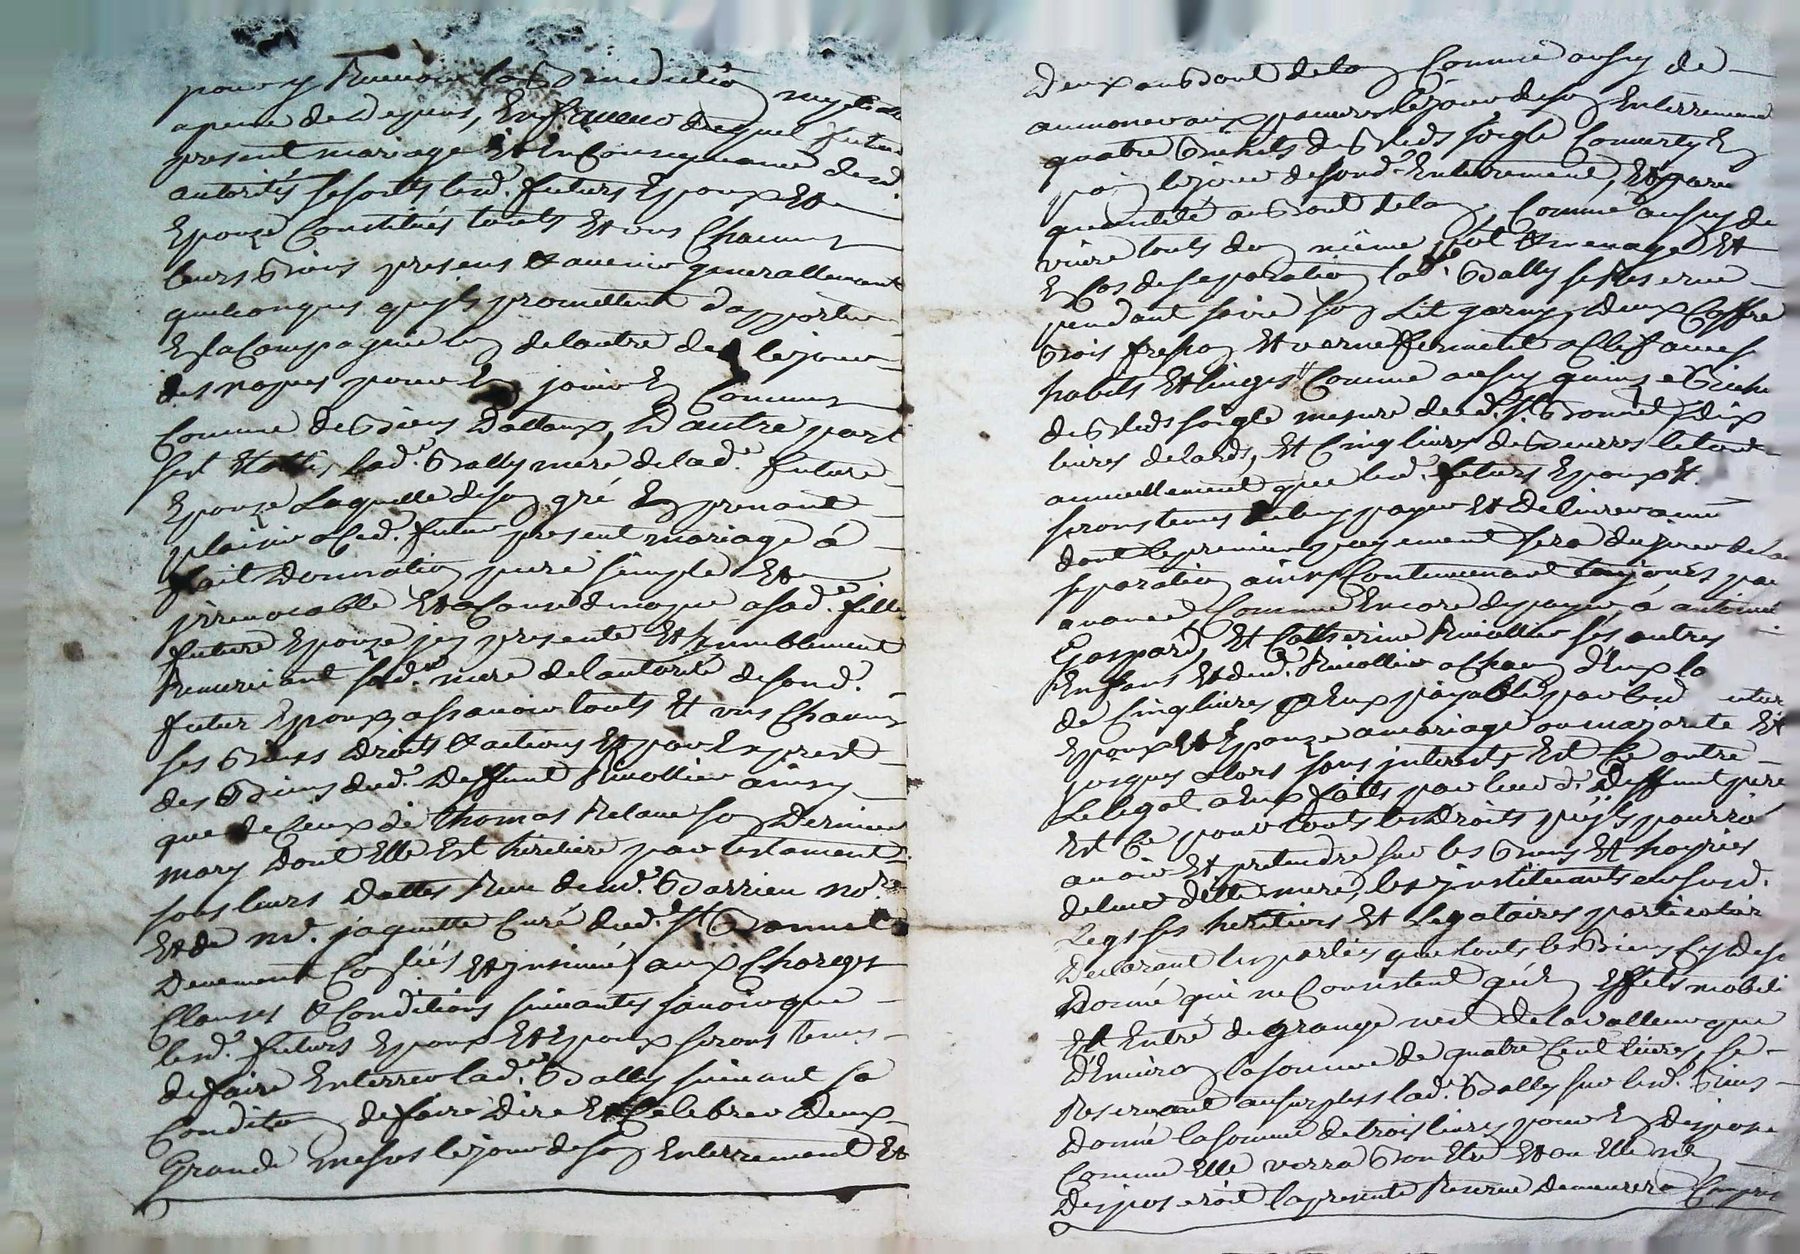 pour y recevoir la benediction nuptialle
a peine de depens, En faveur duquel futur
present mariage Et En Consequance desd.
autorités se sont lesd. futurs Epoux Et
Epouze Constitués touts Et uns Chacuns
leurs Biens presens & avenir generallement
quelconques qu'ils promettent d'apporter
En la Compagnie l'un de lautre des le jour
des nopces pour En jouir En Commun
Comme de Biens Dottaux, D'autre part
sest Etablie lad.e Bally mere de lad.e future
Epouze Laquelle de son gré En prenant
plaisir aud. futur present mariage à
fait Donnation pure simple Et
jrrevocable Et a Cause de nopce a sad.e fille
future Epouze jcy presente Et humblement
Remerciant sad.e mere de lautorité de sond.
futur Epoux assavoir touts Et uns Chacuns
ses Biens Droits & actions Et par Exprest
des Biens dud.t Deffunt Rivollier ainsy
que de Ceux de Thomas Relave son Dernier
mary Dont Elle Est hèritiere par testament
sous leurs Dattes Recu de m.e Barrieu no.re
Et de m.e jaquette Curé dud.t S.t Bonnet
Deuement Collés Et jnsinué, aux Charges
Clauses & Conditions suivantes savoir que
lesd.s futurs Epoux Et Epouse seront tenus
de faire Enterrer lad.e Bally suivant sa
Condition de faire Dire Et Celebrer Deux
Grande messes le jour de son Enterrement Et
Deux au Bout de lan Comme aussy de
aumoner aux pauvres le jour de son Enterrement
quatre Bichets de Bleds seigle Converty En
pain le jour de sond. Enterrement, Et pareille
quantité au Bout de lan, Comme aussy de
vivre touts d'un même pot & menage Et
En Cas de separation lad.e Bally se Reserve
pendant sa vie son Lit garny, deux Coffre
Bois fresse Et verne fferment a Clef avec ses
habits Et linges Comme aussy quinze Bichets
de Bleds seigle mesure dud. S.t Bonnet, dix
livres de lards, Et Cinq livres de Beurres le tout
annuellement que lesd. futurs Epoux Et
seront tenus de luy payer Et Delivrer
dont le premier payement sera du jour de la
separation ainsy Continuant toujours par
avance, Comme Encore de payer, a antoine
Gaspard, Et Catherine Rivollier ses autres
Enfans Et dud. Rivollier a Chacun d'Eux la
de Cinq livres a Eux payables par lesd. futur
Epoux Et Epouze a mariage ou majorité Et
jusques alors sans jnterets Et Ce outre
Le legat a Eux faits par leurd.t Deffunt pere
Et Ce pour touts les Droits qu'jls pourroi
avoir Et pretendre sur les Biens Et hoyries
de leur ditte mere, les jnstituants
Legt ses heritiers Et Legataires particuliers
Declarant les parties que touts les Biens Cy Dess
Donné qui ne Consistent qu'En Effets mobili
Et Entré de grange nest de la valleur que
d'Environ la somme de quatre Cent livres, se
Reservant au surplus lad.e Bally sur lesd.s Biens
donné la somme de trois livres pour En disposer
Comme Elle verra Bon Etre Et ou Elle n'En
Disposeroit la presente Reserve demeurera Compris